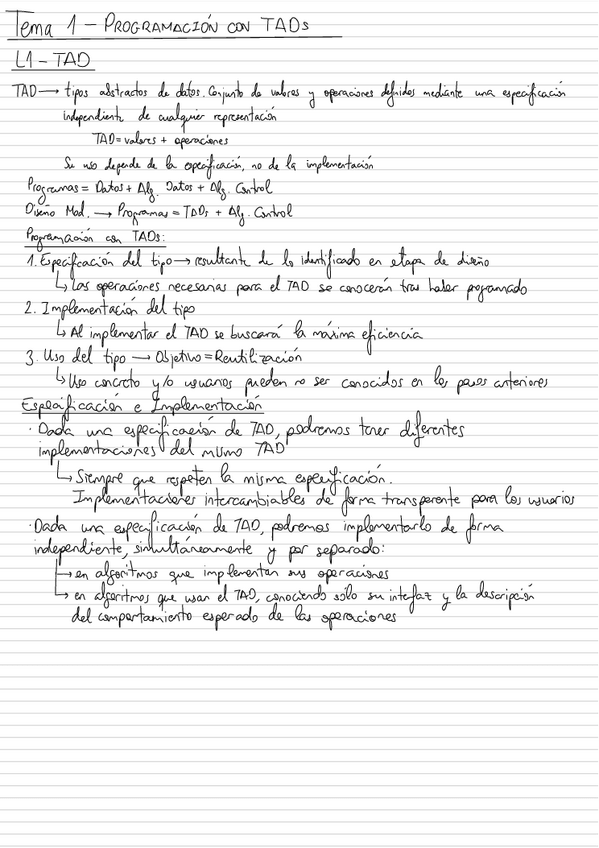 Tema 1 - PROGRAMACIÓN CON TADs
L1 - TAD
TAD → tipos abstractos de datos. Conjunto de valores y operaciones definidos mediante una especificación
independiente de cualquier representación
TAD = valores + operaciones
Su uso depende de la especificación, no de la implementación
Programas = Datos + Alg. Datos + Alg. Control
Diseño Mod. → Programas = TADs + Alg. Control
Programación con TADs:
1. Especificación del tipo → resultante de lo identificado en etapa de diseño
↳ Las operaciones necesarias para el TAD se conocerán tras haber programado
2. Implementación del tipo
↳ Al implementar el TAD se buscará la máxima eficiencia
3. Uso del tipo → Objetivo = Reutilización
↳ Uso concreto y/o usuarios pueden no ser conocidos en los pasos anteriores
Especificación e Implementación
· Dada una especificación de TAD, podremos tener diferentes
implementaciones del mismo TAD
↳ Siempre que respeten la misma especificación.
Implementaciones intercambiables de forma transparente para los usuarios
· Dada una especificación de TAD, podremos implementarlo de forma
independiente, simultáneamente y por separado:
↳ en algoritmos que implementan sus operaciones
↳ en algoritmos que usan el TAD, conociendo sólo su interfaz y la descripción
del comportamiento esperado de las operaciones